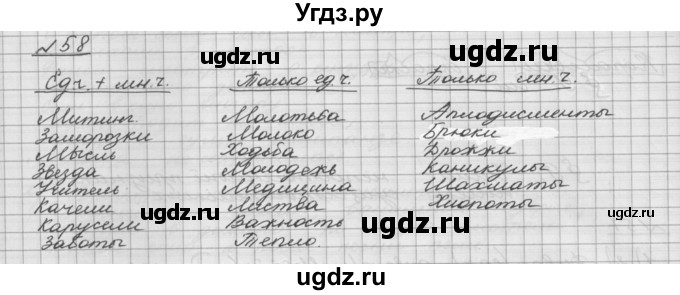 Угдз.ру
№58
ugdz.ru ugdz.ru
Ед.ч. + мн.ч. Только ед.ч. Только мн.ч.
Митинг Молотьба Аплодисменты
Заморозки Молоко Брюки
Мысль Ходьба Дрожжи
Звезда Молодежь Каникулы
Учитель Медицина Шахматы
Качели Листва Хлопоты
Карусели Важность
Заботы Тепло.
ugdz.ru ugdz.ru
ugdz.ru ugdz.ru
ugdz.ru ugdz.ru
ugdz.ru